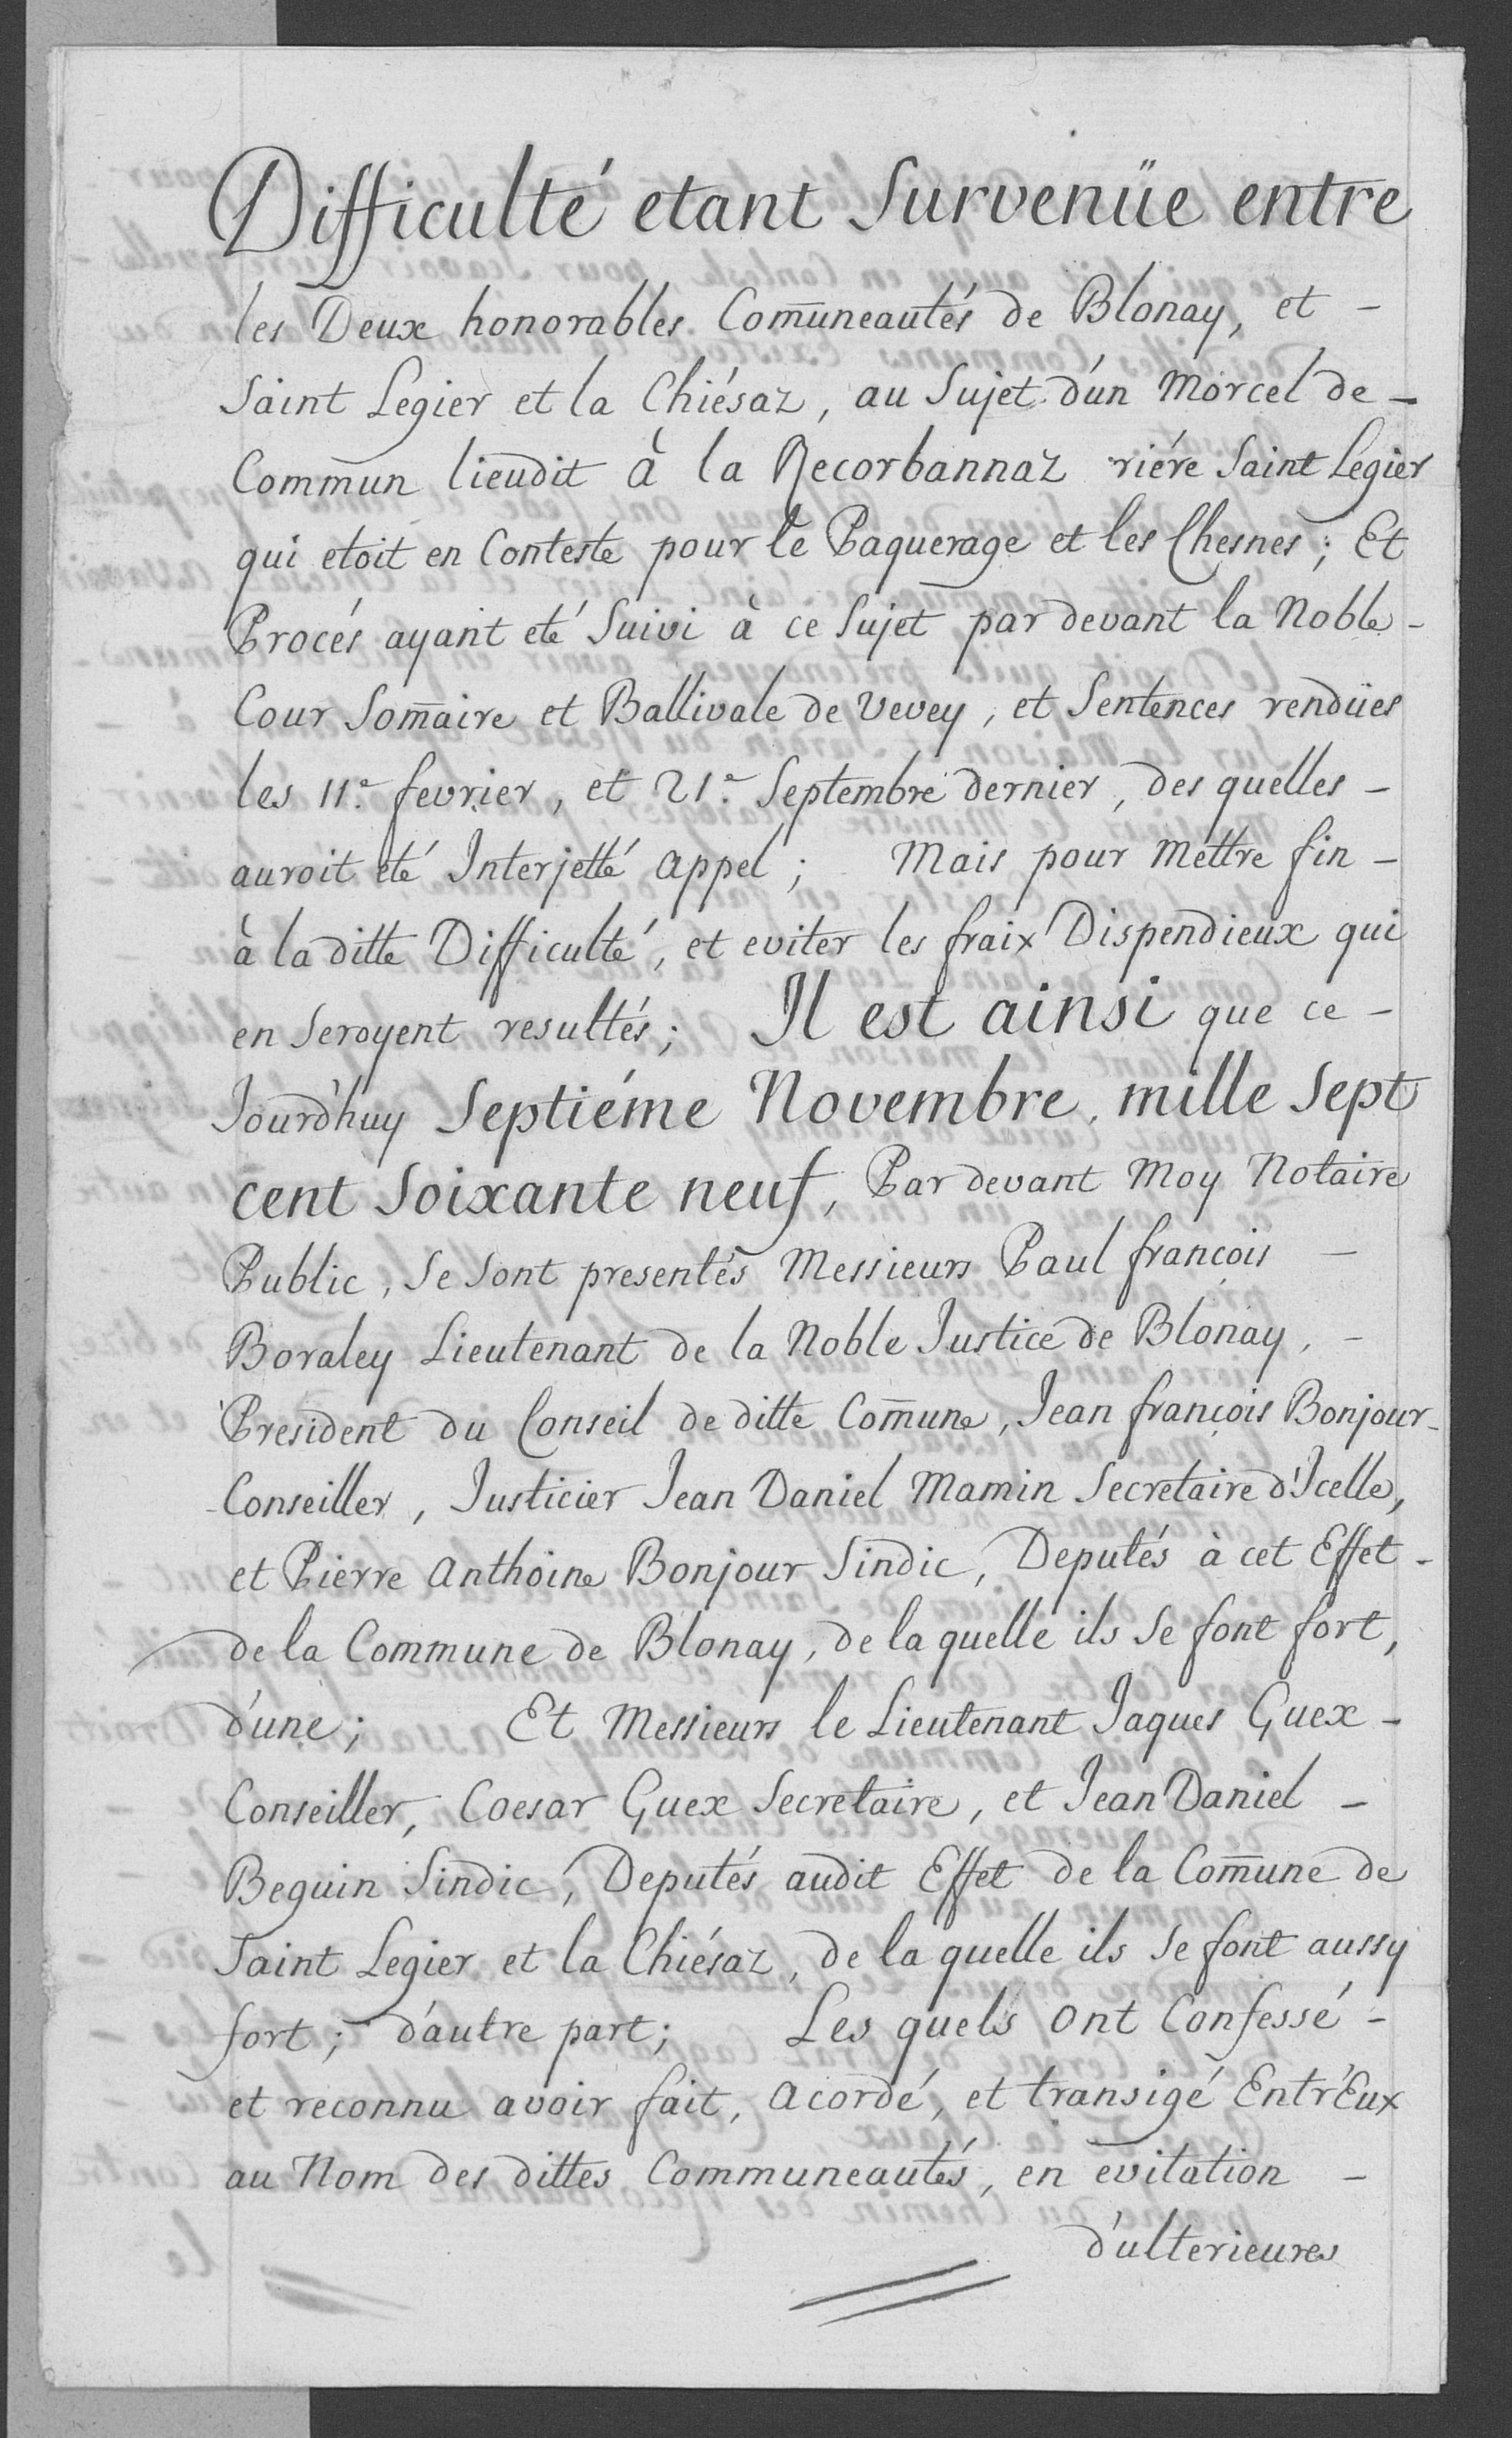 Difficulté etant Survenüe entre
les Deux honorables Com̄uneautés de Blonay, et -
Saint Legier et la Chiésaz, au Sujet d'un Morcel de -
Commun lieudit à la Recorbannaz riére Saint Légier
qui etoit en Conteste pour le Paquerage et les Chesnes; Et
Procés ayant eté Suivi à ce Sujet par devant la Noble -
Cour Som̄aire et Ballivale de Vevey, et Sentences rendües
les 11.e fevrier, et 21.e Septembre dernier, des quelles -
auroit eté Interjetté appel; Mais pour Mettre fin -
à la ditte Difficulté, et eviter les fraix Dispendieux qui
en Seroyent resultés; Il est ainsi que ce -
Jourd'huy Septiéme Novembre, mille Sept
cent Soixante neuf, Par devant Moy Notaire
Public, Se Sont presentés Messieurs Paul françois -
Boraley Lieutenant de la Noble Justice de Blonay, -
President du Conseil de ditte Com̄une, Jean françois Bonjour -
Conseiller, Justicier Jean Daniel Mamin Secretaire d'Icelle,
et Pierre Anthoine Bonjour Sindic, Deputés à cet Effet -
de la Commune de Blonay, de la quelle ils Se font fort,
d'une; Et Messieurs le Lieutenant Jaques Guex -
Conseiller, Coesar Guex Secretaire, et Jean Daniel -
Beguin Sindic, Deputés audit Effet de la Com̄une de
Saint Legier et la Chiésaz, de la quelle ils Se font aussy
fort; d'autre part; Les quels ont Confessé -
et reconnu avoir fait, acordé, et transigé Entr'Eux
au Nom des dittes Communeautés, en evitation -
d'ulterieures